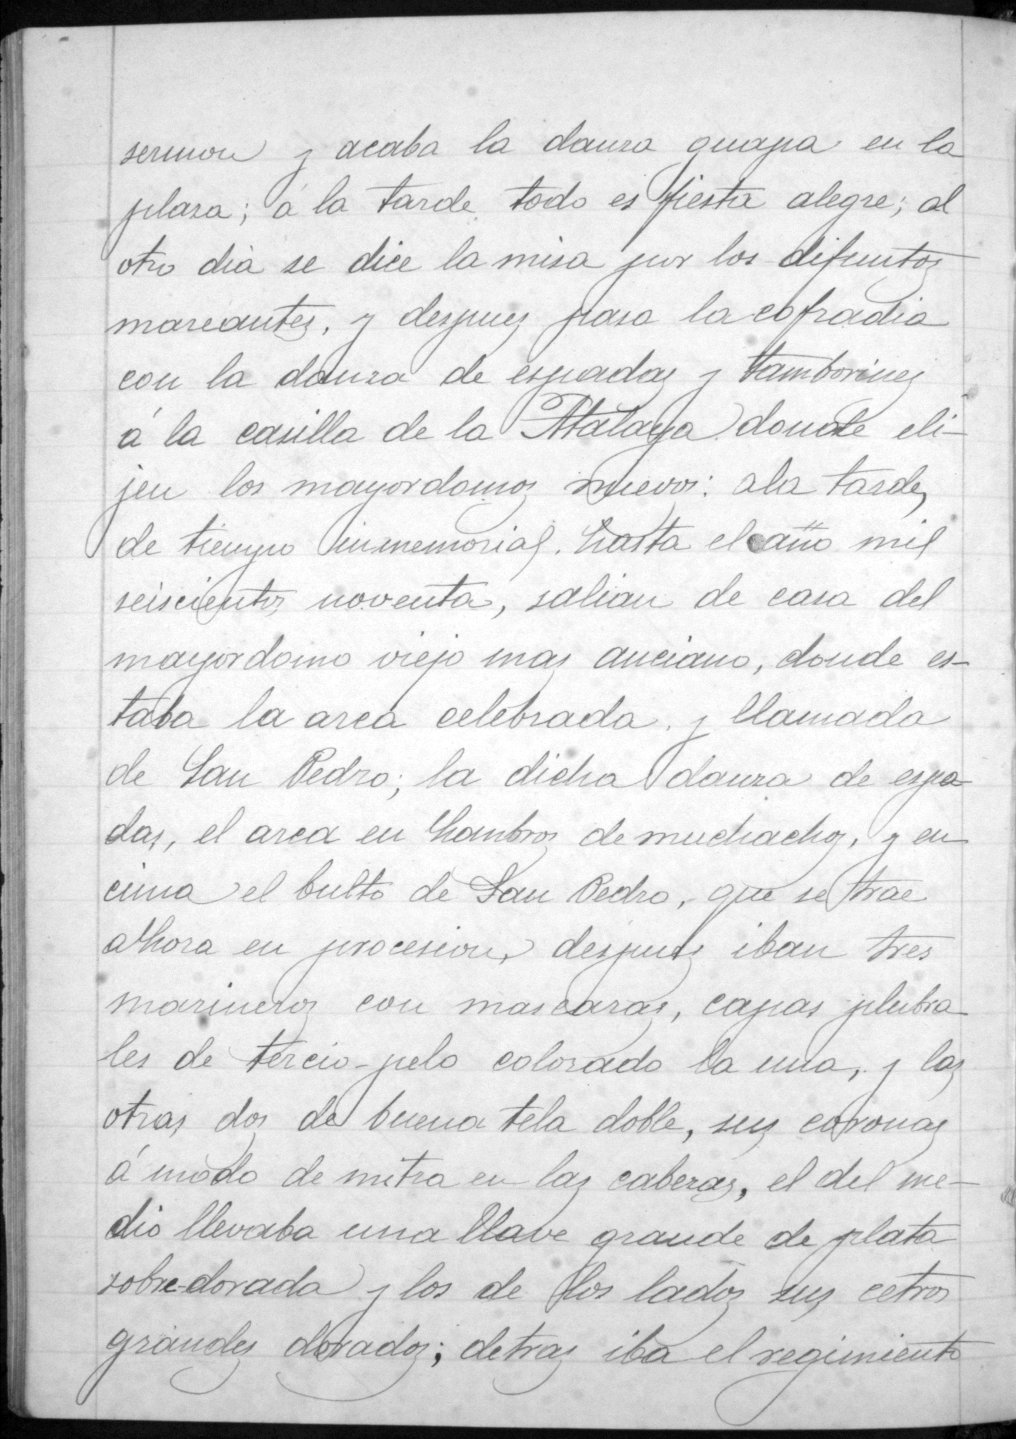 sermon y acaba la danza guapa en la
plaza; á la tarde todo es fiesta alegre; al
otro dia se dice la misa por los difuntos
mareantes, y despues pasa la cofradia
con la danza de espadas y tamborines
á la casilla de la Atalaya donde eli-
jen los mayordomos nuevos: a la tarde,
de tiempo inmemorial. hasta el año mil
seiscientos noventa, salian de casa del
mayordomo viejo mas anciano, donde es-
taba la arca celebrada. y llamada
de San Pedro; la dicha danza de espa-
das, el arca en hombros de muchachos, y en-
cima el bulto de San Pedro, que se trae
ahora en procesion, despues iban tres
marineros con mascaras, capas plubia-
les de tercio-pelo colorado la una, y las
otras dos de buena tela doble, sus coronas
á modo de mitra en las cabezas, el del me-
dio llevaba una llave grande de plata
sobre-dorada y los de los lados sus cetros
grandes dorados; detras iba el regimiento